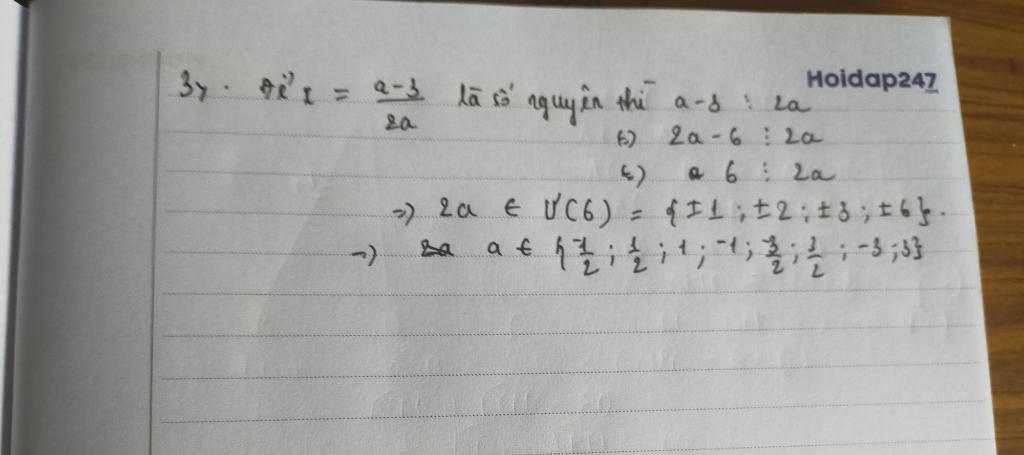 Hoidap247
3, . Để x = \frac{a-3}{2a} là số nguyên thì a-3 ⋮ 2a
(=) 2a-6 ⋮ 2a
(=) 6 ⋮ 2a
=) 2a ∈ Ư(6) = {±1 ; ±2 ; ±3 ; ±6}.
=) a ∈ {\frac{-1}{2} ; \frac{1}{2} ; 1 ; -1 ; \frac{-3}{2} ; \frac{3}{2} ; -3 ; 3}